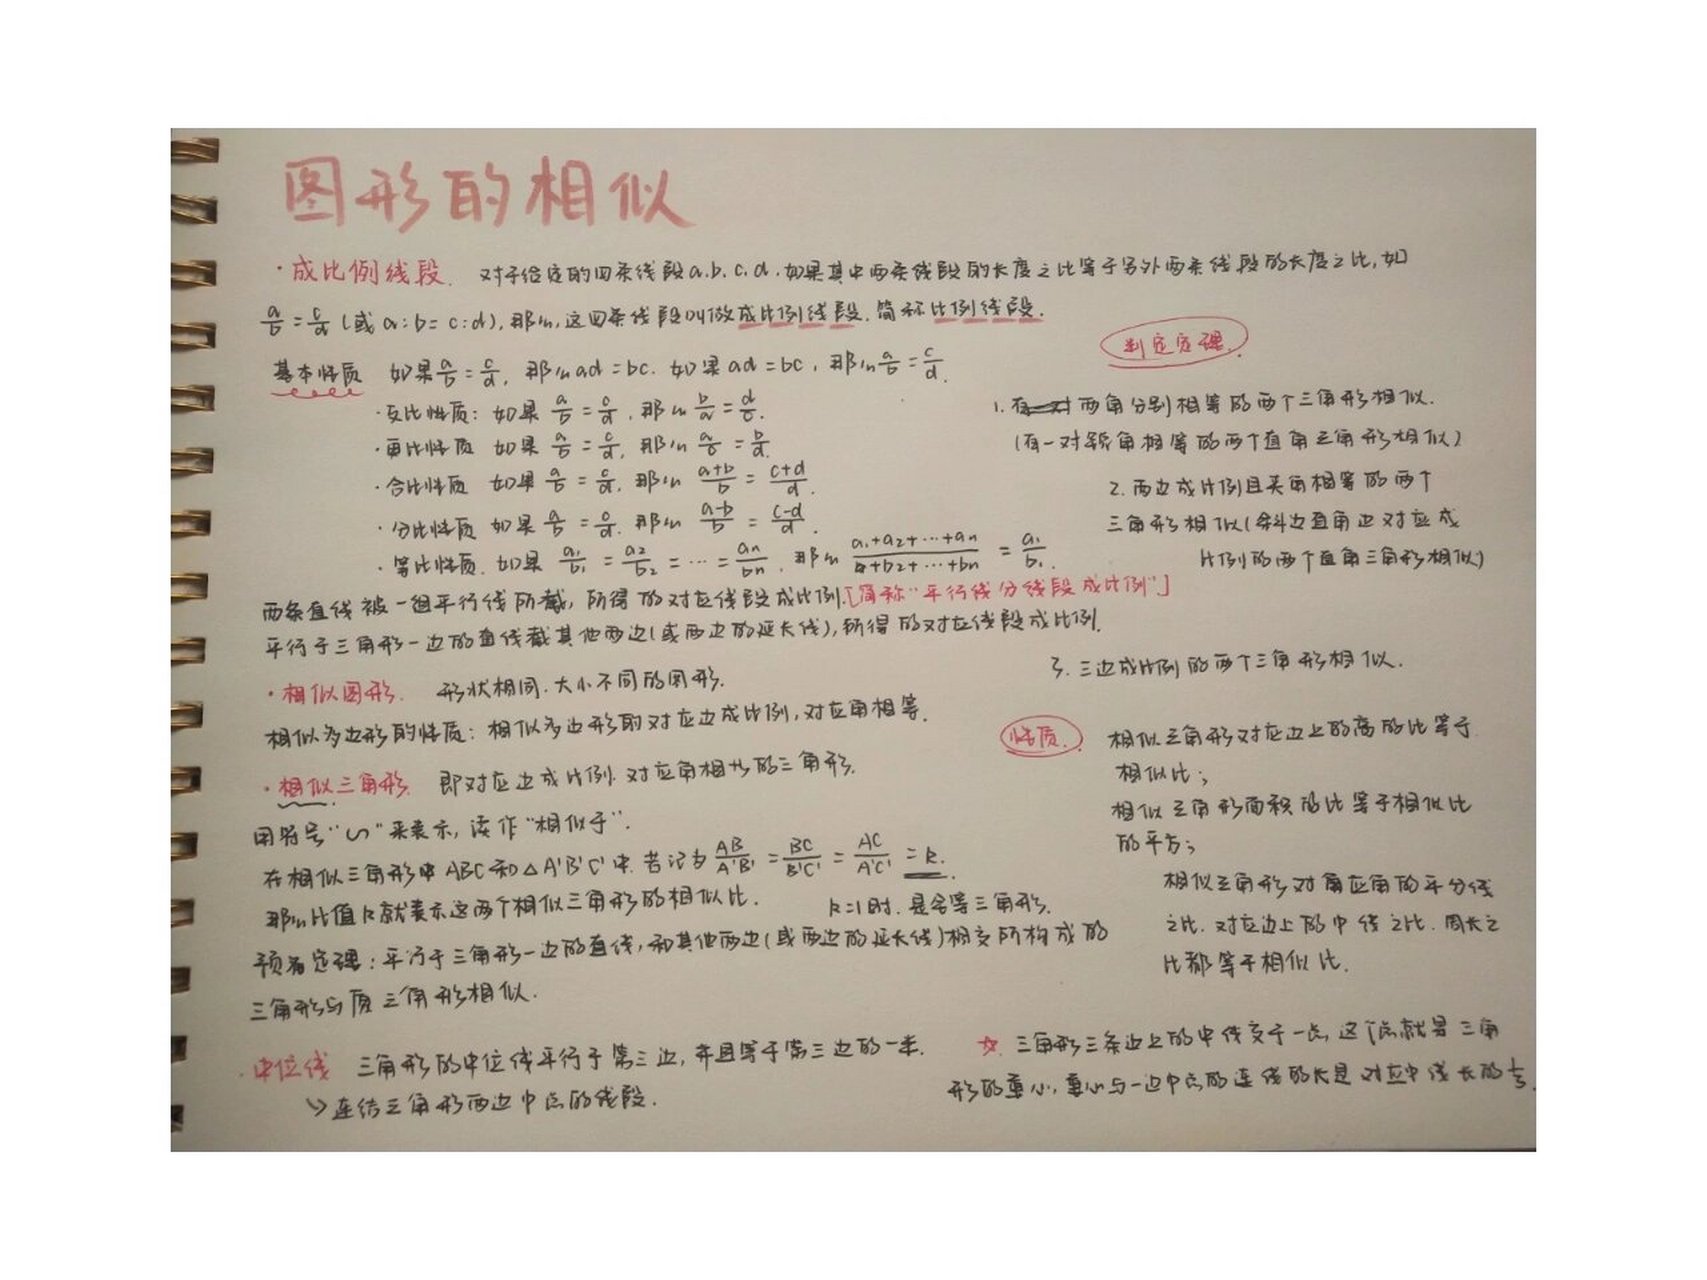 图形的相似
·成比例线段. 对于给定的四条线段a.b.c.d.如果其中两条线段的长度之比等于另外两条线段的长度之比,如
a/b=c/d(或a:b=c:d),那么,这四条线段叫做成比例线段.简称比例线段.
基本性质 如果a/b=c/d,那么ad=bc.如果ad=bc,那么a/b=c/d.
·反比性质:如果a/b=c/d,那么b/a=d/c.
·更比性质 如果a/b=c/d,那么a/c=b/d.
·合比性质 如果a/b=c/d.那么(a+b)/b=(c+d)/d.
·分比性质 如果a/b=c/d.那么(a-b)/b=(c-d)/d.
·等比性质.如果a1/b1=a2/b2=…=an/bn.那么(a1+a2+…+an)/(b1+b2+…+bn)=a1/b1.
两条直线被一组平行线所截,所得的对应线段成比例.[简称“平行线分线段成比例”]
平行于三角形一边的直线截其他两边(或两边的延长线),所得的对应线段成比例.
·相似图形. 形状相同.大小不同的图形.
相似多边形的性质:相似多边形的对应边成比例,对应角相等.
·相似三角形. 即对应边成比例.对应角相等的三角形.
用符号“∽”来表示,读作“相似于”.
在相似三角形中ABC和△A'B'C'中.若记为AB/A'B'=BC/B'C'=AC/A'C'=k.
那么比值k就表示这两个相似三角形的相似比. k=1时.是全等三角形.
预备定理:平行于三角形一边的直线,和其他两边(或两边的延长线)相交所构成的
三角形与原三角形相似.
·中位线 三角形的中位线平行于第三边,并且等于第三边的一半.
↳连结三角形两边中点的线段.
判定定理.
1.两角分别相等的两个三角形相似.
(有一对锐角相等的两个直角三角形相似)
2.两边成比例且夹角相等的两个
三角形相似(斜边直角边对应成
比例的两个直角三角形相似)
3.三边成比例的两个三角形相似.
性质.
相似三角形对应边上的高的比等于
相似比;
相似三角形面积的比等于相似比
的平方;
相似三角形对角应角的平分线
之比.对应边上的中线之比.周长之
比都等于相似比.
☆.三角形三条边上的中线交于一点,这个点就是三角
形的重心,重心与一边中点的连线的长是对应中线长的1/3.